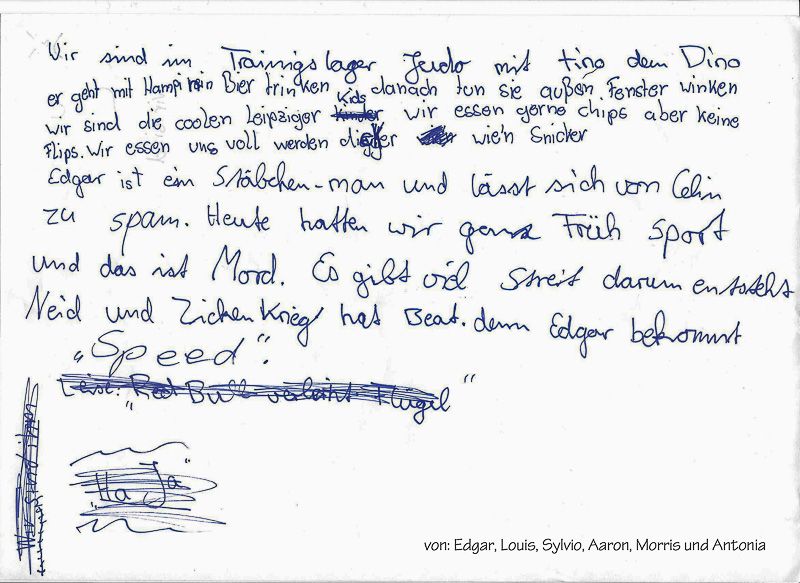 Wir sind im Trainigslager Judo mit tino dem Dino
er geht mit Hampi rein Bier trinken danach tun sie außen Fenster winken
wir sind die coolen Leipziger Kids wir essen gerne chips aber keine
Flips. Wir essen uns voll werden wie'n Snicker
Edgar ist ein Stäbchen-man und lässt sich von Celin
zu spam. Heute hatten wir ganz Früh Sport
und das ist Mord. Es gibt viel Streit darum entsteht
Neid und ZickenKrieg hat Beat. denn Edgar bekommt
„Speed“.
Leise: „Red Bull verleiht Flügel“
„Ha Ja“
Wir sind
von: Edgar, Louis, Sylvio, Aaron, Morris und Antonia